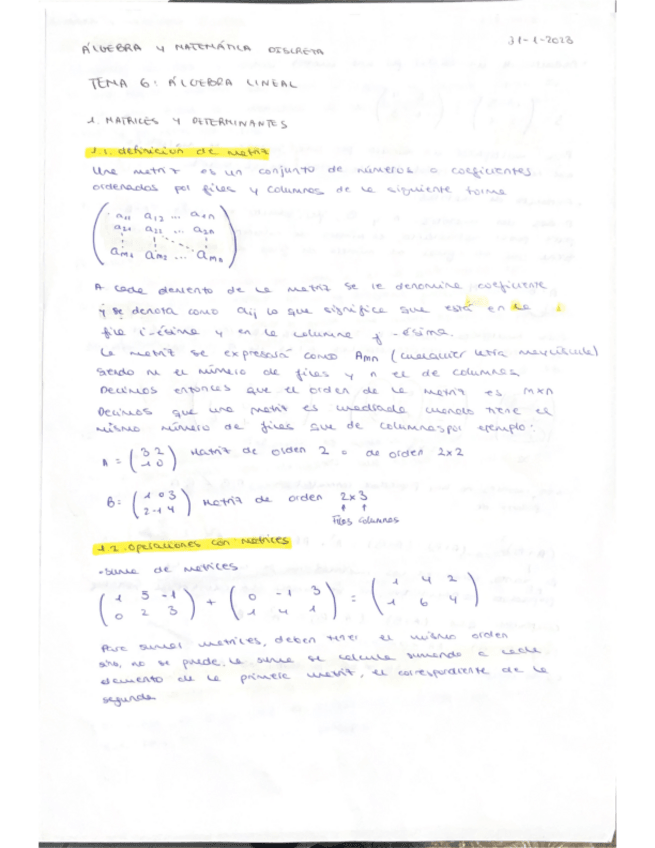 ÁLGEBRA Y MATEMÁTICA DISCRETA
31-1-2023
TEMA 6: ÁLGEBRA LINEAL
1. MATRICES Y DETERMINANTES
1.1. definición de matriz
Una matriz es un conjunto de números o coeficientes
ordenados por filas y columnas de la siguiente forma
a11 a12 ... a1n
a21 a22 ... a2n
am1 am2 ... amn
A cada elemento de la matriz se le denomina coeficiente
y se denota como aij lo que significa que está en la
fila i-ésima y en la columna j-ésima.
La matriz se expresará como Amn (cualquier letra mayúscula)
siendo m el número de filas y n el de columnas
Decimos entonces que el orden de la matriz es mxn
Decimos que una matriz es cuadrada cuando tiene el
mismo número de filas que de columnas por ejemplo:
A = (3 2 / 1 0) Matriz de orden 2 o de orden 2x2
B = (1 0 3 / 2 -1 4) Matriz de orden 2x3
Filas columnas
1.2. Operaciones con matrices
• Suma de matrices
(1 5 -1 / 0 2 3) + (0 -1 3 / 1 4 1) = (1 4 2 / 1 6 4)
Para sumar matrices, deben tener el mismo orden
sino, no se puede, la suma se calcula sumando a cada
elemento de la primera matriz, el correspondiente de la
segunda